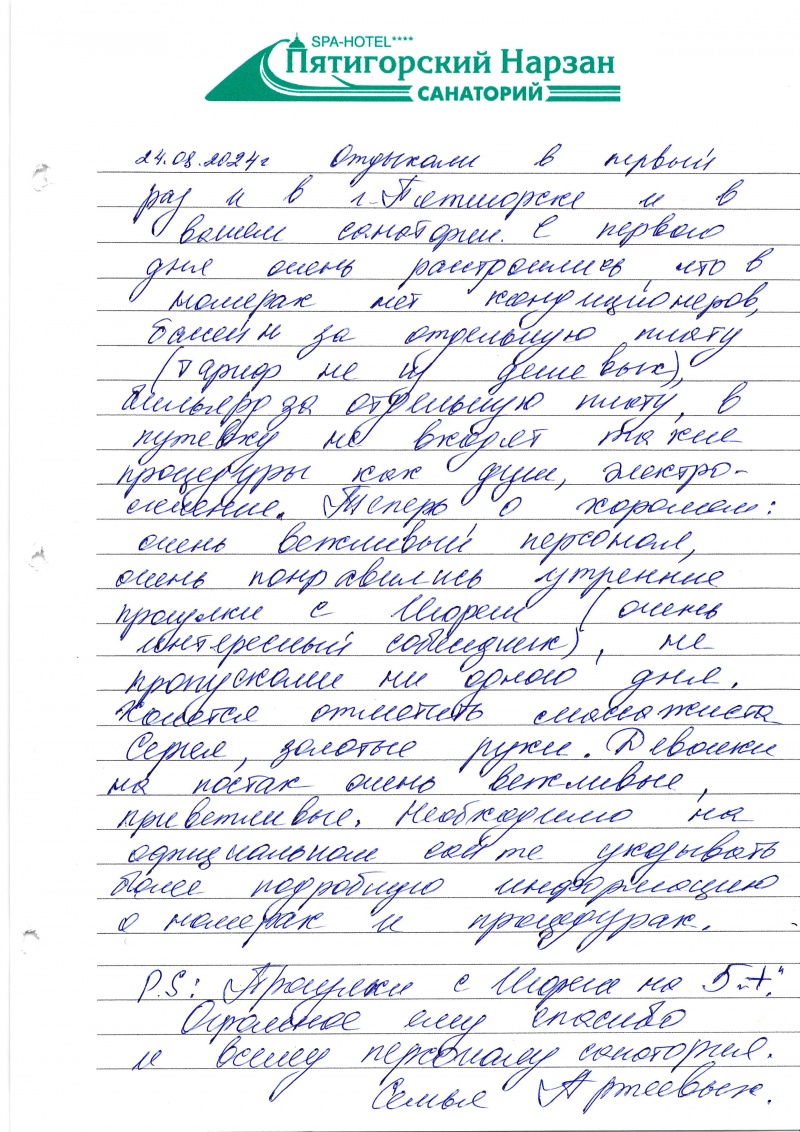 SPA-HOTEL****
Пятигорский Нарзан
САНАТОРИЙ
24.08.2024г Отдыхали в первый
раз и в г. Пятигорске и в
вашем санатории. С первого
дня очень расстроились, что в
номерах нет кондиционеров,
бассейн за отдельную плату
(тариф не из дешевых),
бильярд за отдельную плату, в
путевку не входят такие
процедуры как душ, электро-
лечение. Теперь о хорошем:
очень вежливый персонал,
очень понравились утренние
прогулки с Игорем (очень
интересный собеседник), не
пропускали ни одного дня.
Хочется отметить массажиста
Сергея, золотые руки. Девочки
на постах очень вежливые,
приветливые. Необходимо на
официальном сайте указывать
более подробную информацию
о номерах и процедурах.
P.S: Прогулки с Игорем на 5+".
Огромное ему спасибо
и всему персоналу санатория.
Семья